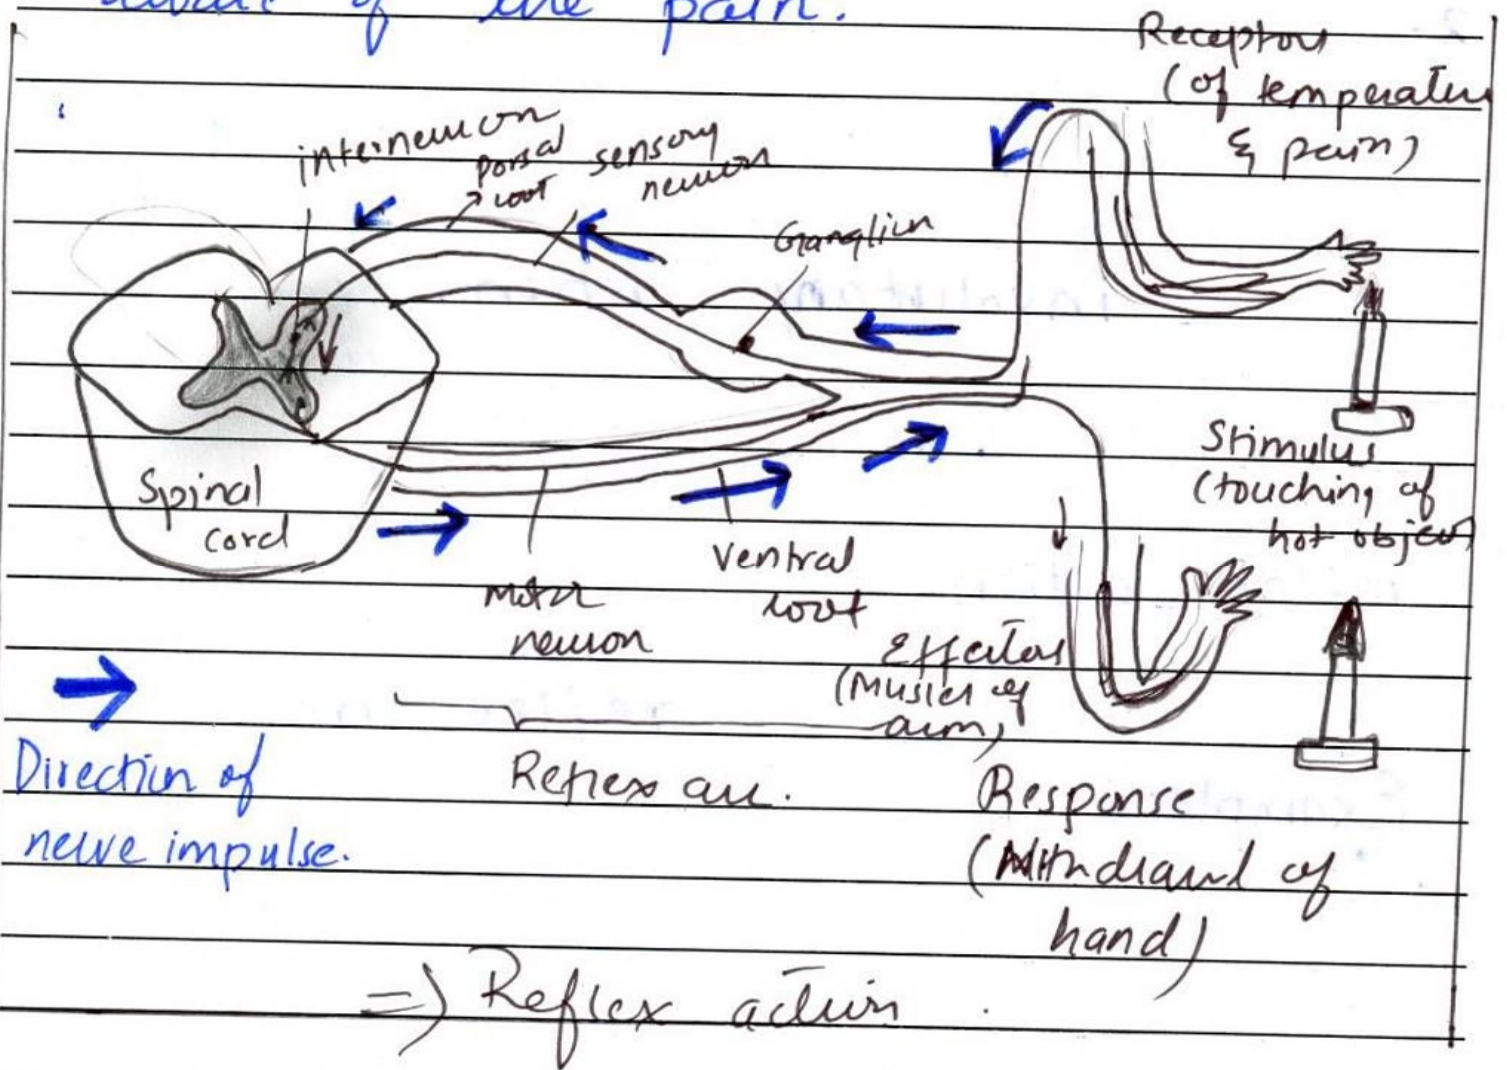 aware of the pain.
Receptors
(of temperature
& pain)
interneuron
Dorsal
root
sensory
neuron
Ganglion
Stimulus
(touching of
hot object
Spinal
cord
Motor
neuron
Ventral
root
Effectors
(Muscles of
arm)
Direction of
nerve impulse.
Reflex arc.
Response
(Withdrawl of
hand)
=) Reflex action.